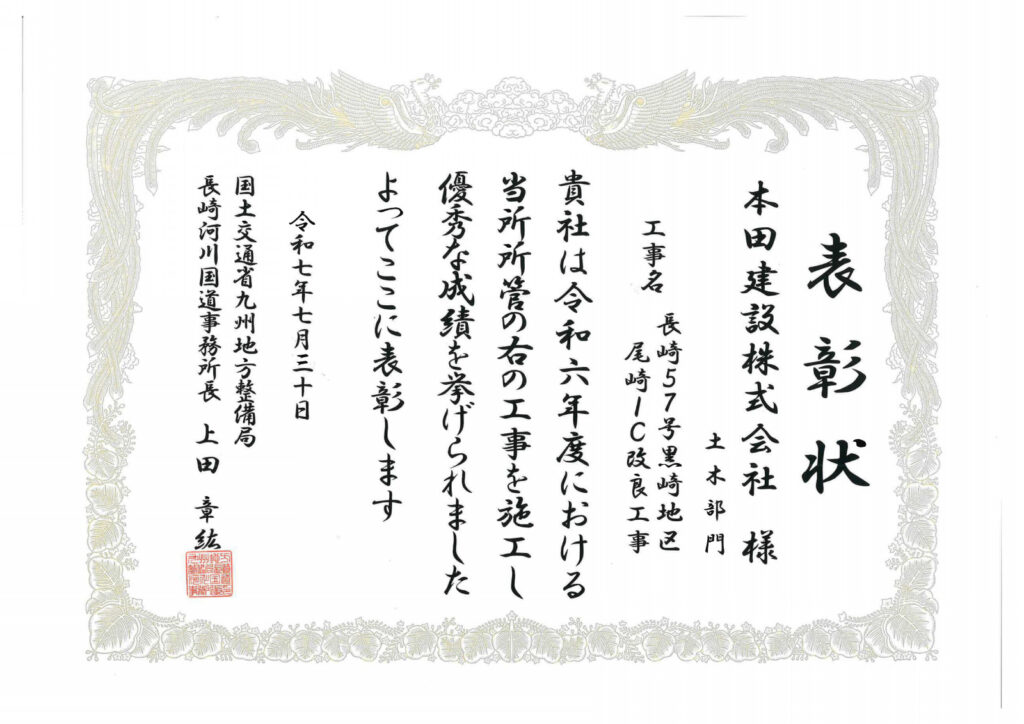 表彰状
本田建設株式会社 様
土木部門
工事名
長崎57号黒崎地区
尾崎IC改良工事
貴社は令和六年度における
当所所管の右の工事を施工し
優秀な成績を挙げられました
よってここに表彰します
令和七年七月三十日
国土交通省九州地方整備局
長崎河川国道事務所長 上田 章紘